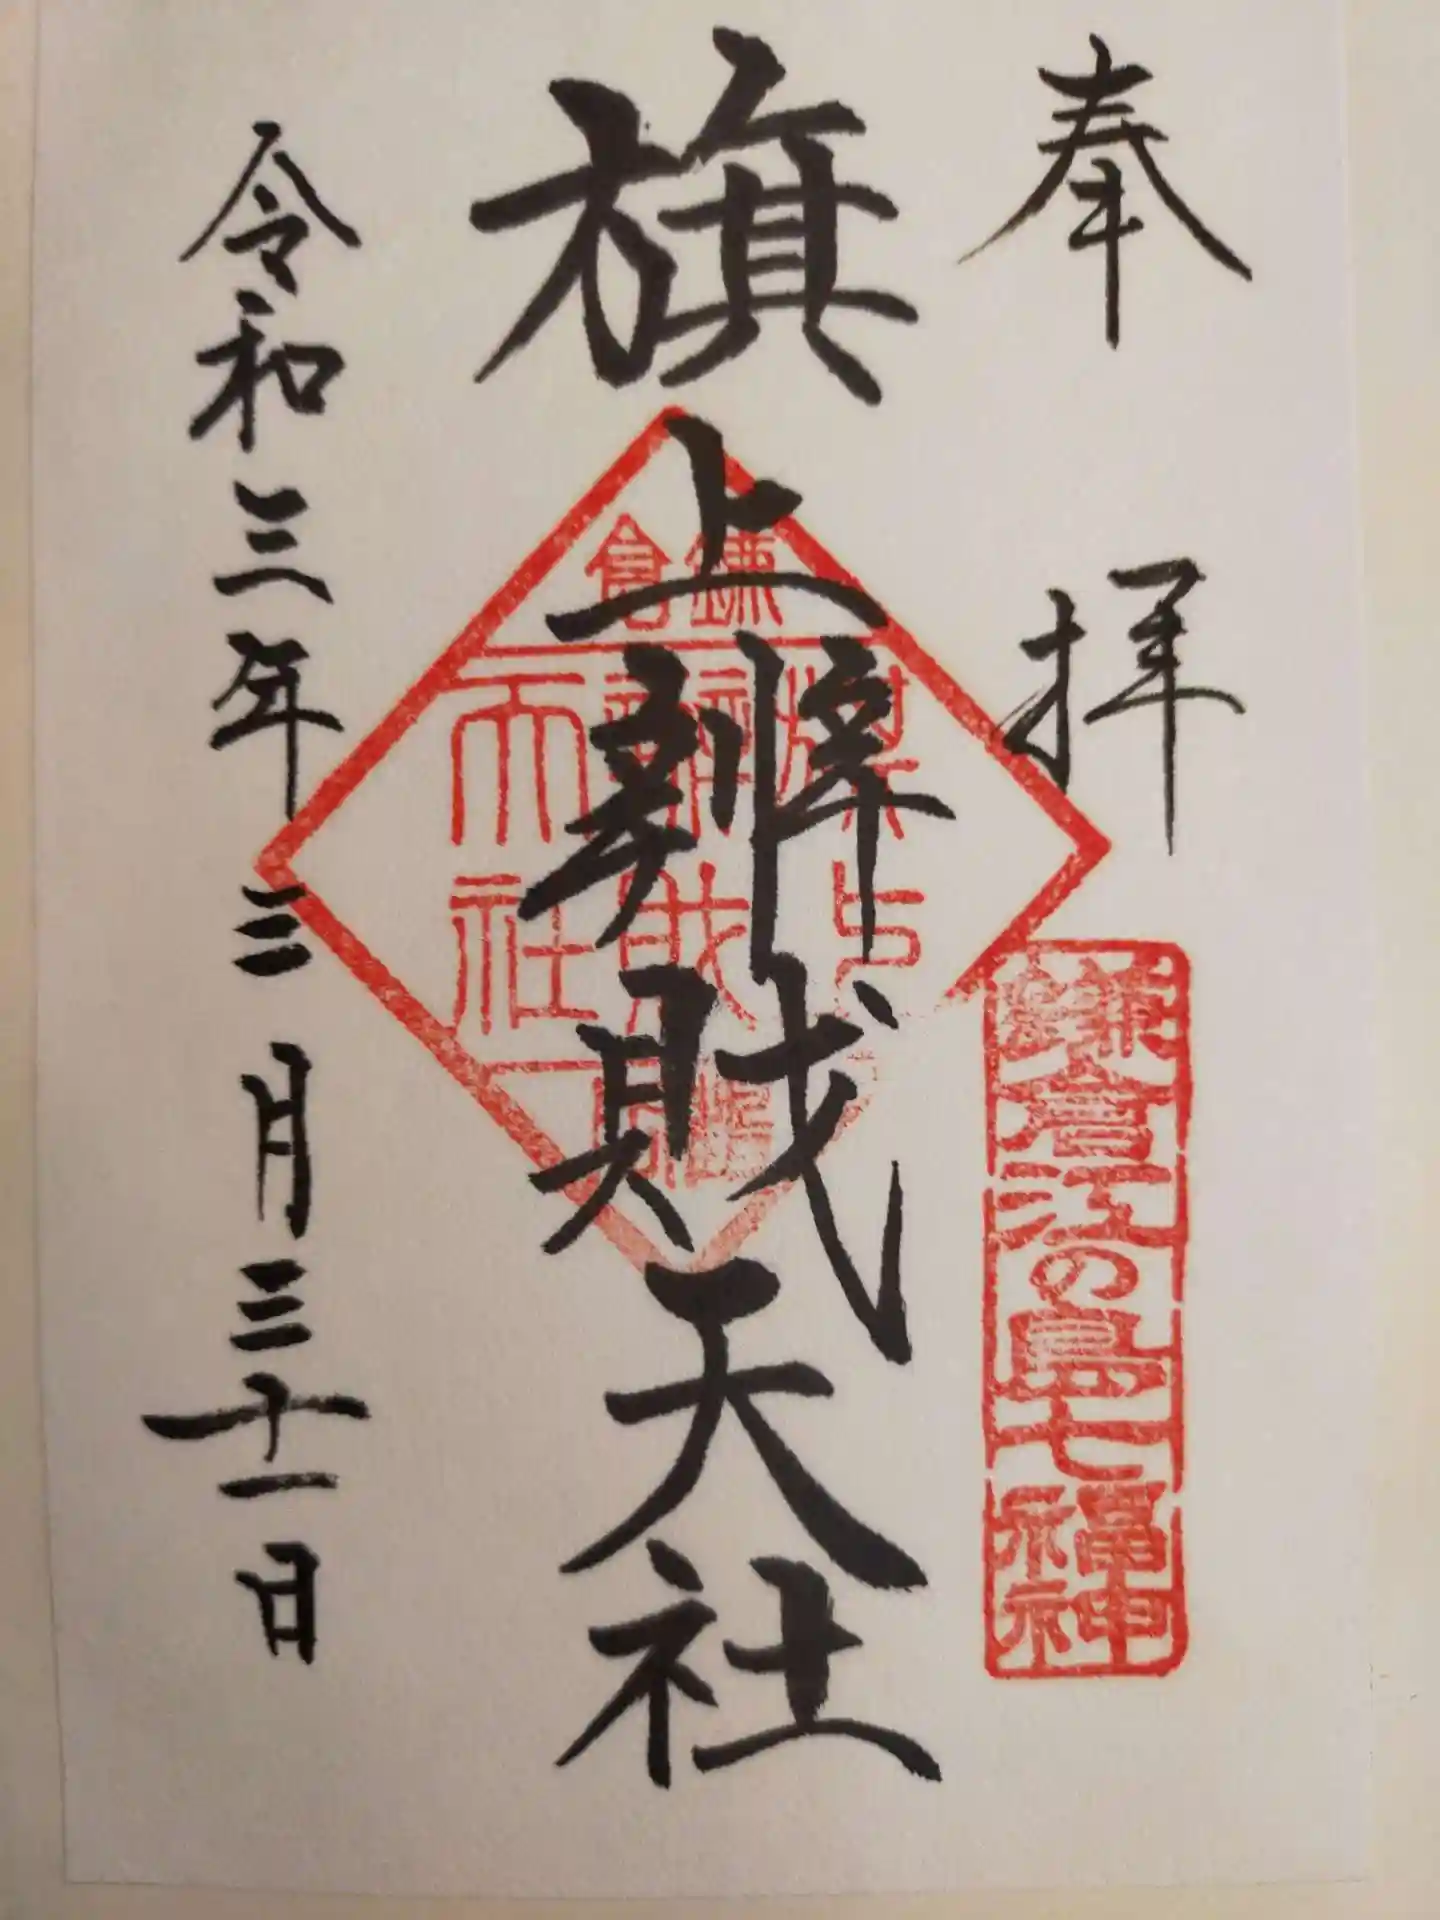 奉拝
鎌倉江の島七福神
旗上辨財天社
鎌倉
旗上
辨財
天社
令和三年三月三十一日